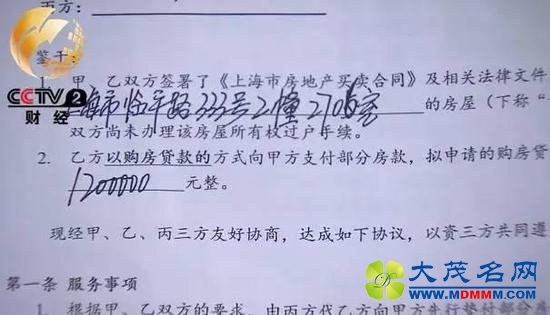 丙方：
鉴于：
1. 甲、乙双方签署了《上海市房地产买卖合同》及相关法律文件
上海市临平路333号2幢2706室 的房屋（下称“
双方尚未办理该房屋所有权过户手续。
2. 乙方以购房贷款的方式向甲方支付部分房款，拟申请的购房贷
1200000 元整。
现经甲、乙、丙三方友好协商，达成如下协议，以资三方共同遵
第一条 服务事项
1. 根据甲、乙双方的要求，由丙方代乙方向甲方先行垫付部分房
CCTV 2
财经
大茂名网
WWW.MDMMM.COM